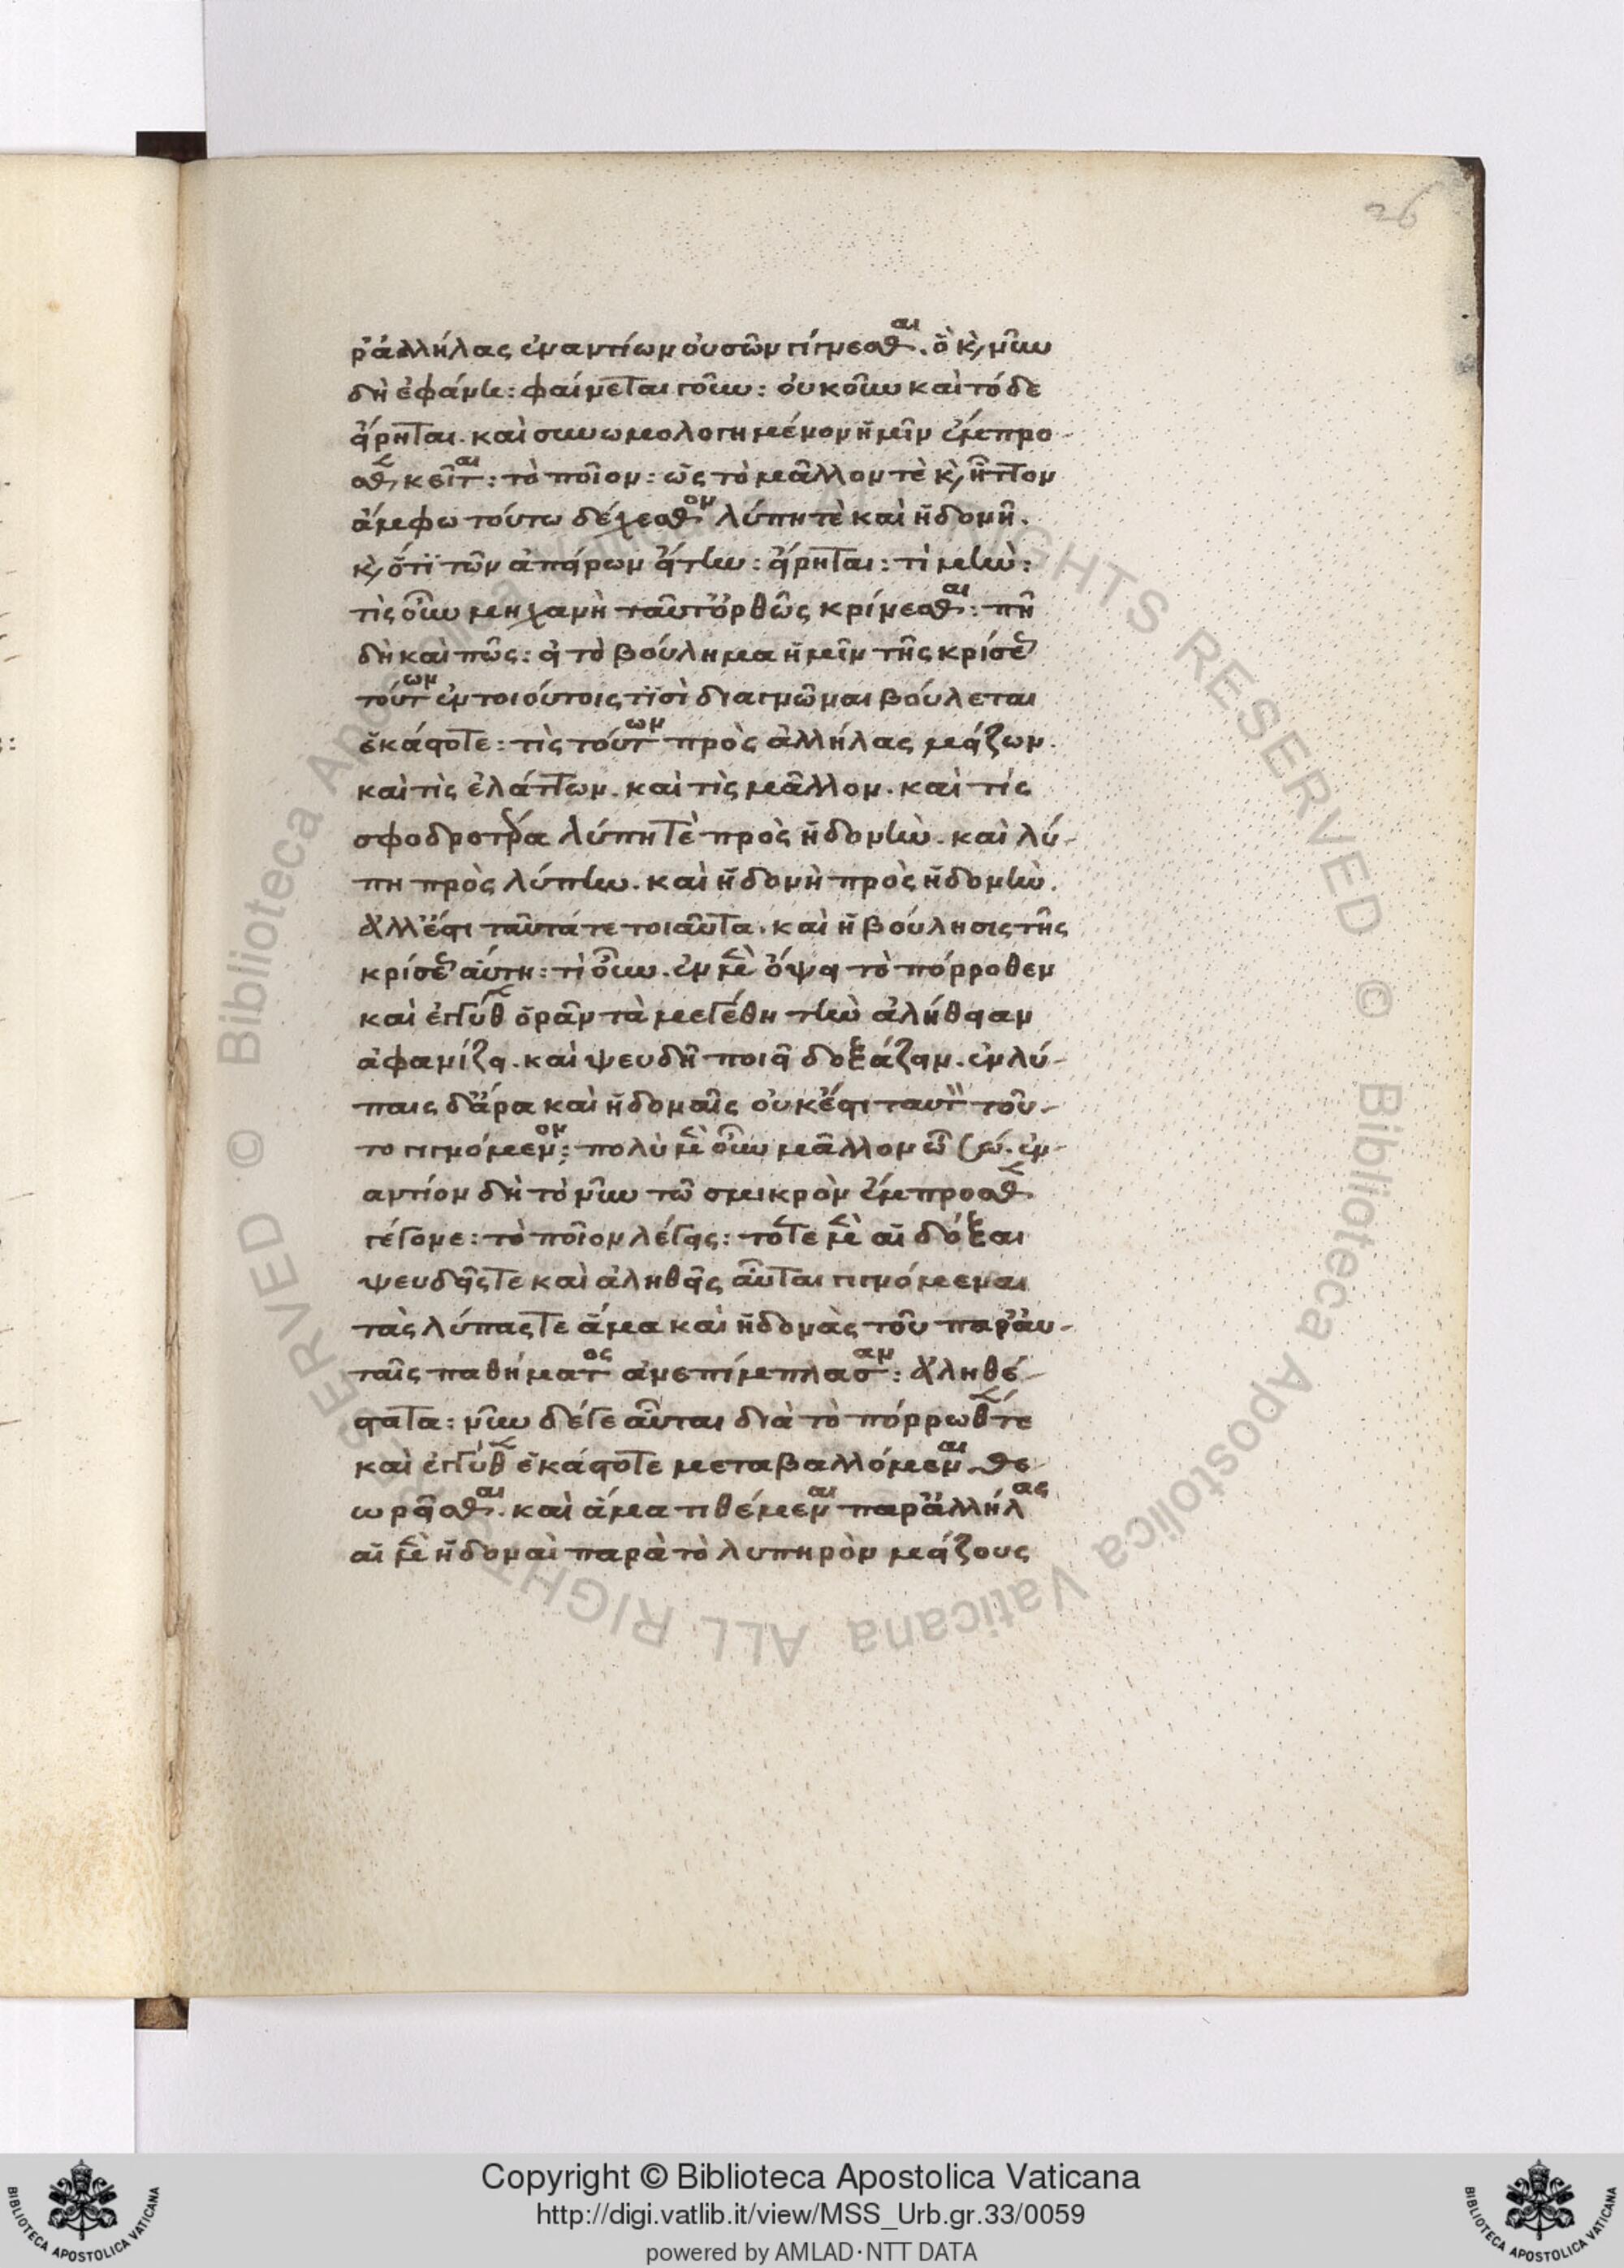 26
ράλλήλας ἐναντίων οὐσῶν γίγνεσθαι. ὃ καὶ νῦν
δὴ ἐφάνη: φαίνεται γοῦν: οὐκοῦν καὶ τόδε
εἴρηται. καὶ συνωμολογημένον ἡμῖν ἔμπρο-
σθεν κεῖται: τὸ ποῖον: ὡς τὸ μᾶλλον τὲ καὶ ἧττον
ἄμφω τούτω δέχεσθον λύπη τὲ καὶ ἡδονῆ.
καὶ ὅτι τῶν ἀπείρων εἴτην: εἴρηται: τί μὴν:
τίς οὖν μηχανὴ ταῦτ' ὀρθῶς κρίνεσθαι: πῆ
δὴ καὶ πῶς: εἰ τὸ βούλημα ἡμῖν τῆς κρίσεως
τούτων ἐν τοιούτοις τισὶ διαγνῶναι βούλεται
ἑκάστοτε: τίς τούτων πρὸς ἀλλήλας μείζων.
καὶ τίς ἐλάττων. καὶ τίς μᾶλλον. καὶ τίς
σφοδροτέρα λύπη τὲ πρὸς ἡδονὴν. καὶ λύ-
πη πρὸς λύπην. καὶ ἡδονὴ πρὸς ἡδονὴν.
ἀλλ' ἔστι ταῦτά τε τοιαῦτα. καὶ ἡ βούλησις τῆς
κρίσεως αὕτη: τί οὖν. ἐν μὲν ὄψει τὸ πόρροθεν
καὶ ἐγγύθεν ὁρᾶν τὰ μεγέθη τὴν ἀλήθειαν
ἀφανίζει. καὶ ψευδῆ ποιεῖ δοξάζειν. ἐν λύ-
παις δ' ἄρα καὶ ἡδοναῖς οὐκ ἔστι ταυτὸν τοῦ-
το γιγνόμενον; πολὺ μὲν οὖν μᾶλλον ὦ σώ. ἐν-
αντίον δὴ τὸ νῦν τῶ σμικρὸν ἔμπροσθεν
γέγονε: τὸ ποῖον λέγεις: τότε μὲν αἱ δόξαι
ψευδεῖς τε καὶ ἀληθεῖς αὗται γιγνόμεναι
τὰς λύπας τε ἅμα καὶ ἡδονὰς τοῦ παρ' αὐ-
ταῖς παθήματος ἀνεπίμπλασαν: ἀληθέ-
στατα: νῦν δέ γε αὗται διὰ τὸ πόρρωθέν τε
καὶ ἐγγύθεν ἑκάστοτε μεταβαλλόμεναι θε-
ωρεῖσθαι. καὶ ἅμα τιθέμεναι παρ' ἀλλήλας
αἱ μὲν ἡδοναὶ παρὰ τὸ λυπηρὸν μείζους
© Biblioteca Apostolica Vaticana ALL RIGHTS RESERVED © Biblioteca Apostolica Vaticana ALL RIGHTS RESERVED
Copyright © Biblioteca Apostolica Vaticana
http://digi.vatlib.it/view/MSS_Urb.gr.33/0059
powered by AMLAD·NTT DATA
BIBLIOTECA APOSTOLICA VATICANA
BIBLIOTECA APOSTOLICA VATICANA